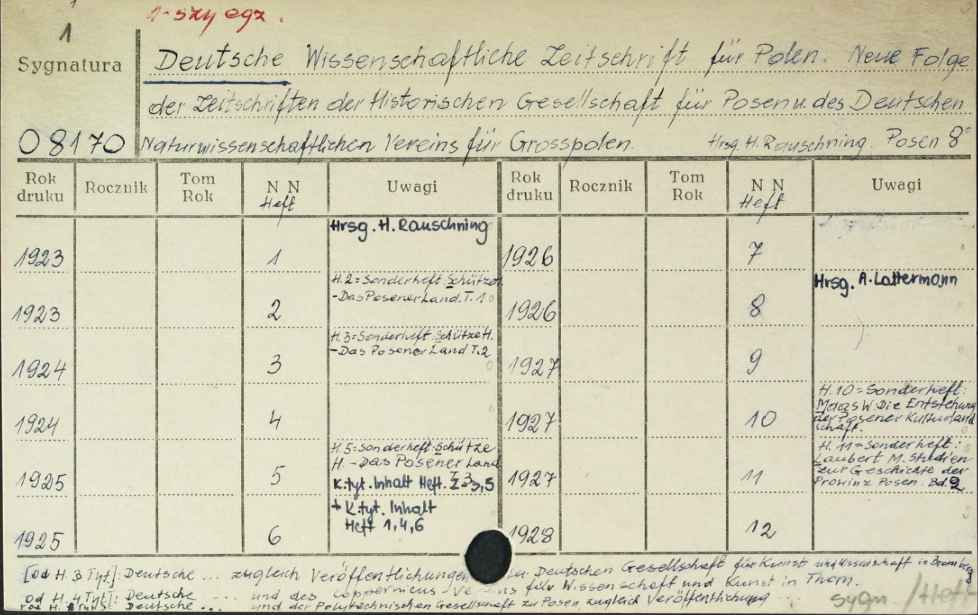 1
1-szy egz.
Sygnatura
Deutsche Wissenschaftliche Zeitschrift für Polen. Neue Folge
der Zeitschriften der Historischen Gesellschaft für Posen u. des Deutschen
08170 Naturwissenschaftlichen Vereins für Grosspolen. Hrsg. H. Rauschning. Posen 8°
Rok druku Rocznik Tom Rok N N Heft Uwagi Rok druku Rocznik Tom Rok N N Heft Uwagi
Hrsg. H. Rauschning
1923 1 1926 7
H.2=Sonderheft: Schütze
-Das Posener Land. T. 1
Hrsg. A. Lattermann
1923 2 1926 8
H.3=Sonderheft: Schütze H.
-Das Posener Land T.2
1924 3 1927 9
H.10=Sonderheft:
W. Die Entstehung
der Posener Kulturland
schaft.
1924 4 1927 10
H.5=Sonderheft: Schütze
H. -Das Posener Land
T. 3
K. tyt. Inhalt Heft. 2-3,5
H.11=Sonderheft:
Laubert M. Studien
zur Geschichte der
Provinz Posen. Bd. 2
1925 5 1927 11
+ K. tyt. Inhalt
Heft 1,4,6
1925 6 1928 12
[od H. 3 Tyt]: Deutsche ... zugleich Veröffentlichungen Deutschen Gesellschaft für Kunst und Wissenschaft in Bromberg
od H. 4 Tyt]: Deutsche ... und des Coppernicus für Wissenschaft und Kunst in Thorn.
Deutsche ... und der Polytechnischen Gesellschaft zu Posen zugleich Veröffentlichung
sygn /Heft